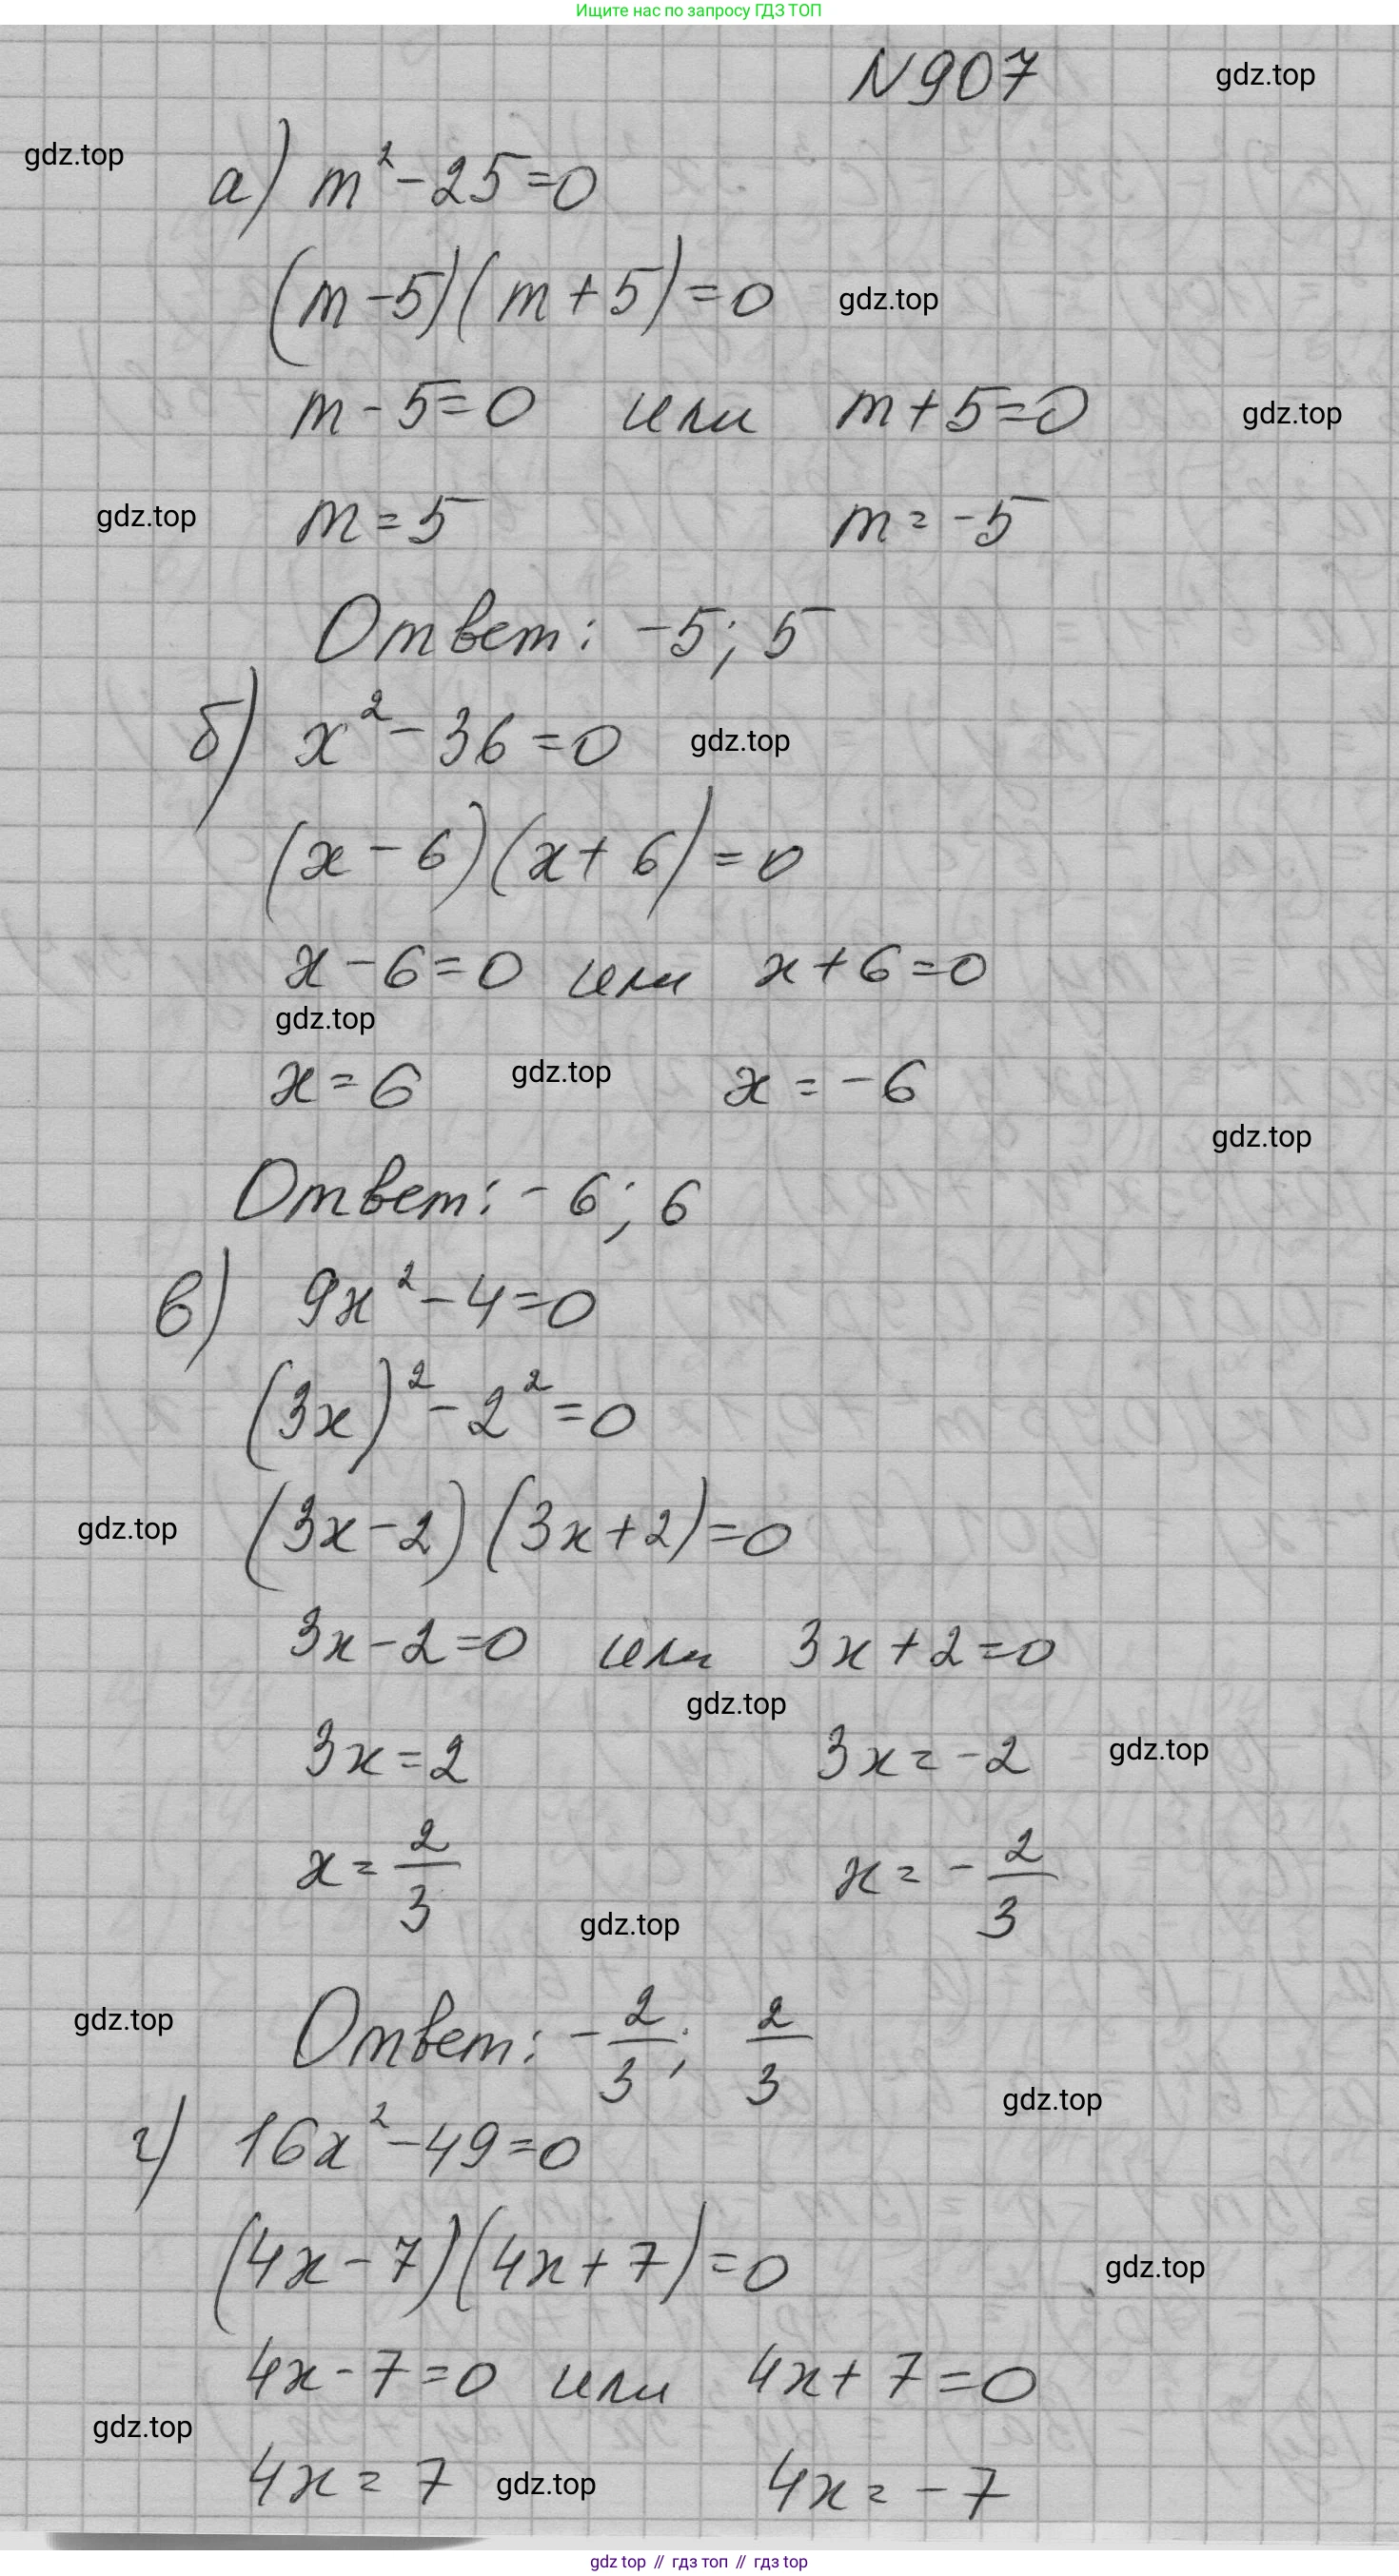 Ищите нас по запросу ГДЗ ТОП
N907 gdz.top
gdz.top
а) m² - 25 = 0
(m - 5)(m + 5) = 0 gdz.top
m - 5 = 0 или m + 5 = 0 gdz.top
gdz.top m = 5 m = -5
Ответ: -5; 5
б) x² - 36 = 0 gdz.top
(x - 6)(x + 6) = 0
x - 6 = 0 или x + 6 = 0
gdz.top
x = 6 gdz.top x = -6
gdz.top
Ответ: -6; 6
в) 9x² - 4 = 0
(3x)² - 2² = 0
gdz.top (3x - 2)(3x + 2) = 0
3x - 2 = 0 или 3x + 2 = 0
gdz.top
3x = 2 3x = -2 gdz.top
x = 2/3 x = -2/3
gdz.top
gdz.top Ответ: -2/3; 2/3
gdz.top
г) 16x² - 49 = 0
(4x - 7)(4x + 7) = 0 gdz.top
4x - 7 = 0 или 4x + 7 = 0
gdz.top
4x = 7 gdz.top 4x = -7
gdz top // гдз топ // гдз top